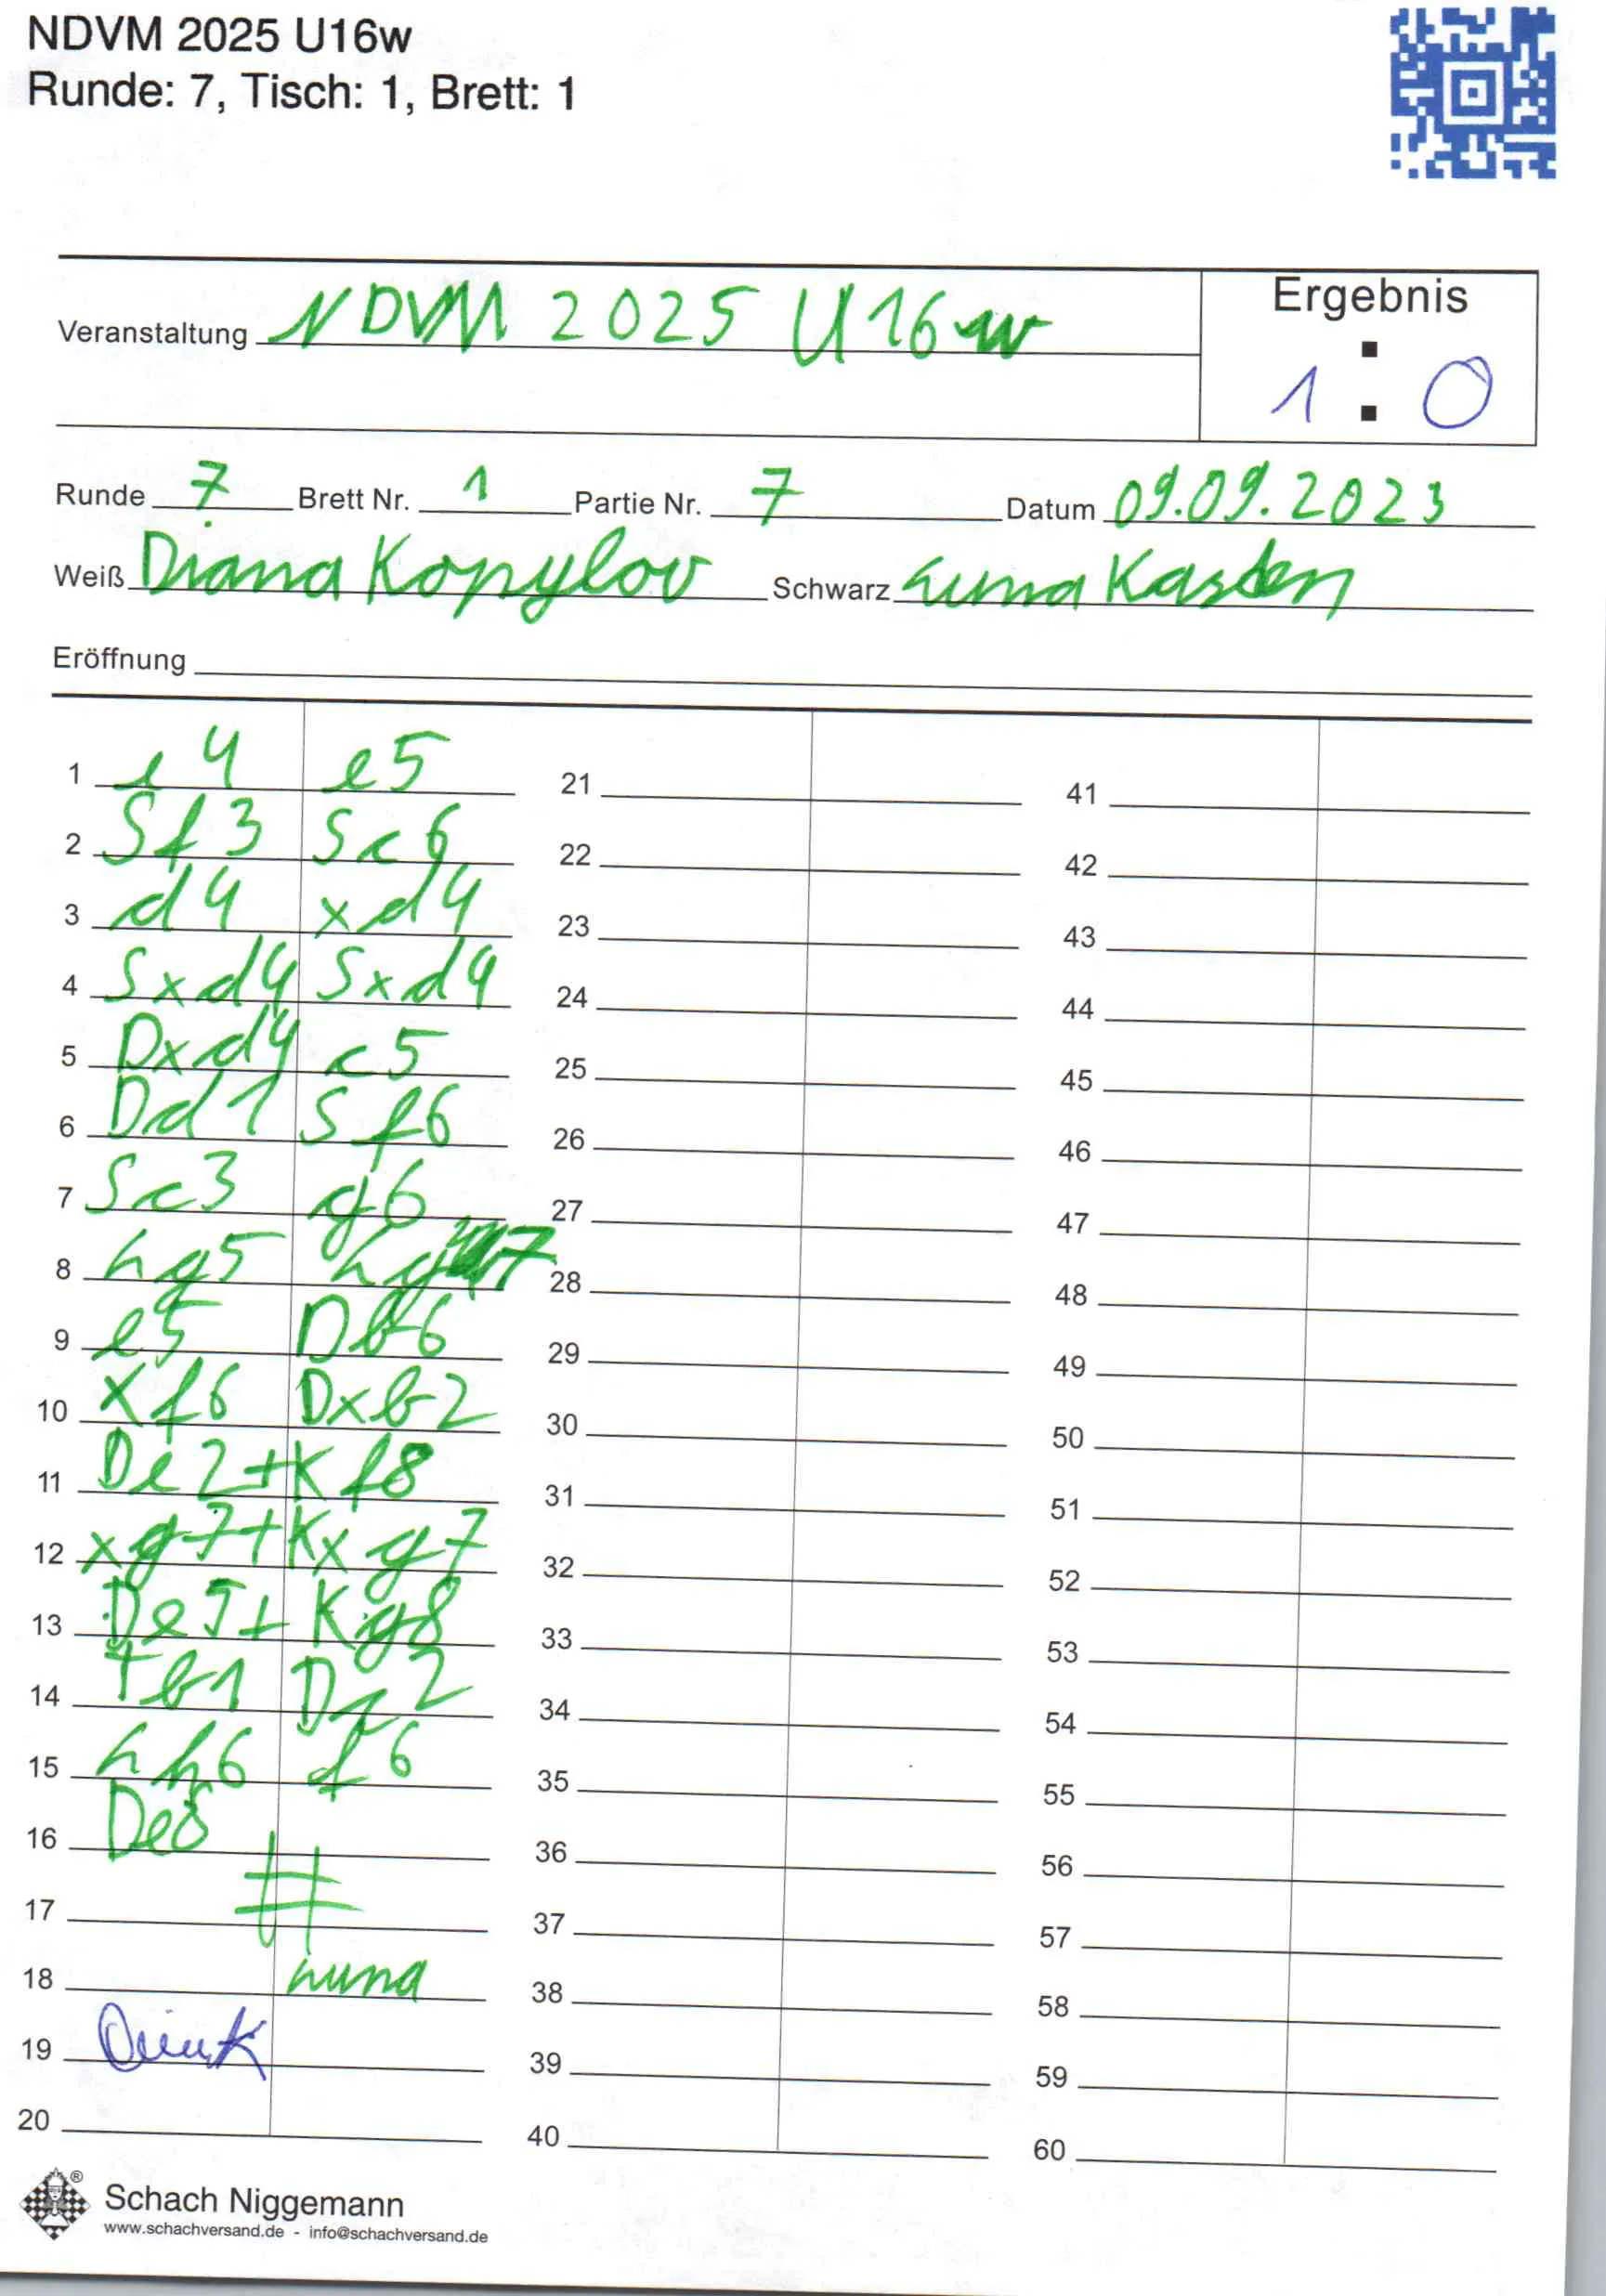 NDVM 2025 U16w
Runde: 7, Tisch: 1, Brett: 1
Veranstaltung NDVM 2025 U16w
Ergebnis
1 : 0
Runde 7 Brett Nr. 1 Partie Nr. 7 Datum 09.09.2023
Weiß Diana Kopylov Schwarz Luna Kasten
Eröffnung
1 e4 e5 21 41
2 Sf3 Sc6 22 42
3 d4 xd4 23 43
4 Sxd4 Sxd4 24 44
5 Dxd4 c5 25 45
6 Dd1 Sf6 26 46
7 Sc3 g6 27 47
8 Lg5 Lg7 28 48
9 e5 Db6 29 49
10 xf6 Dxb2 30 50
11 De2+ Kf8 31 51
12 xg7+ Kxg7 32 52
13 De5+ Kg8 33 53
14 Tb1 Dc2 34 54
15 Lh6 f6 35 55
16 De8 36 56
17 # 37 57
18 Luna 38 58
19 39 59
20 40 60
Schach Niggemann
www.schachversand.de - info@schachversand.de